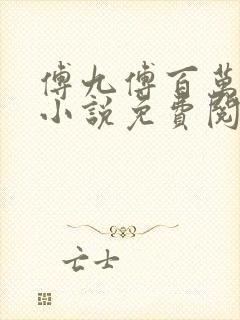 傅九傅百萬
小說免費閱
亡士